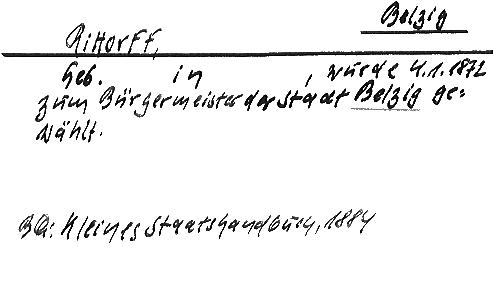 Belzig
Rittorff,
Geb. in , wurde 4.1.1872
zum Bürgermeister der Stadt Belzig ge-
wählt.
BQ: Kleines Staatshandbuch, 1884